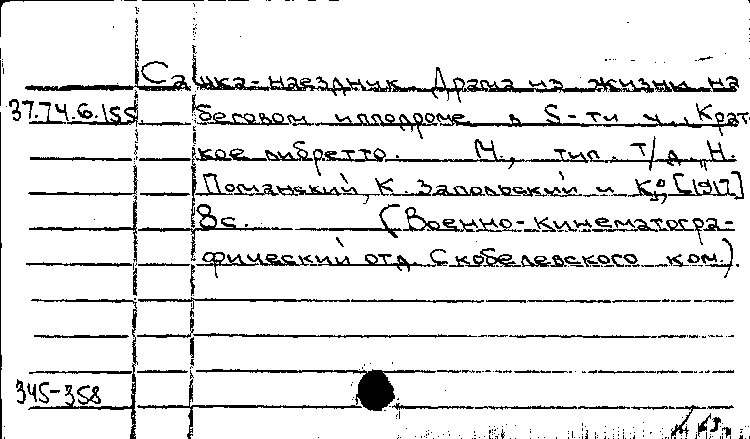 Сашка-наездник. Драма из жизни на
37.74.6.155. беговом ипподроме в 5-ти ч. Крат
кое либретто. М., тип. т/д „Н.
Поманский, К. Запольский и Ко", [1917]
8с. (Военно-кинематогра-
фический отд. Скобелевского ком.).
345-358